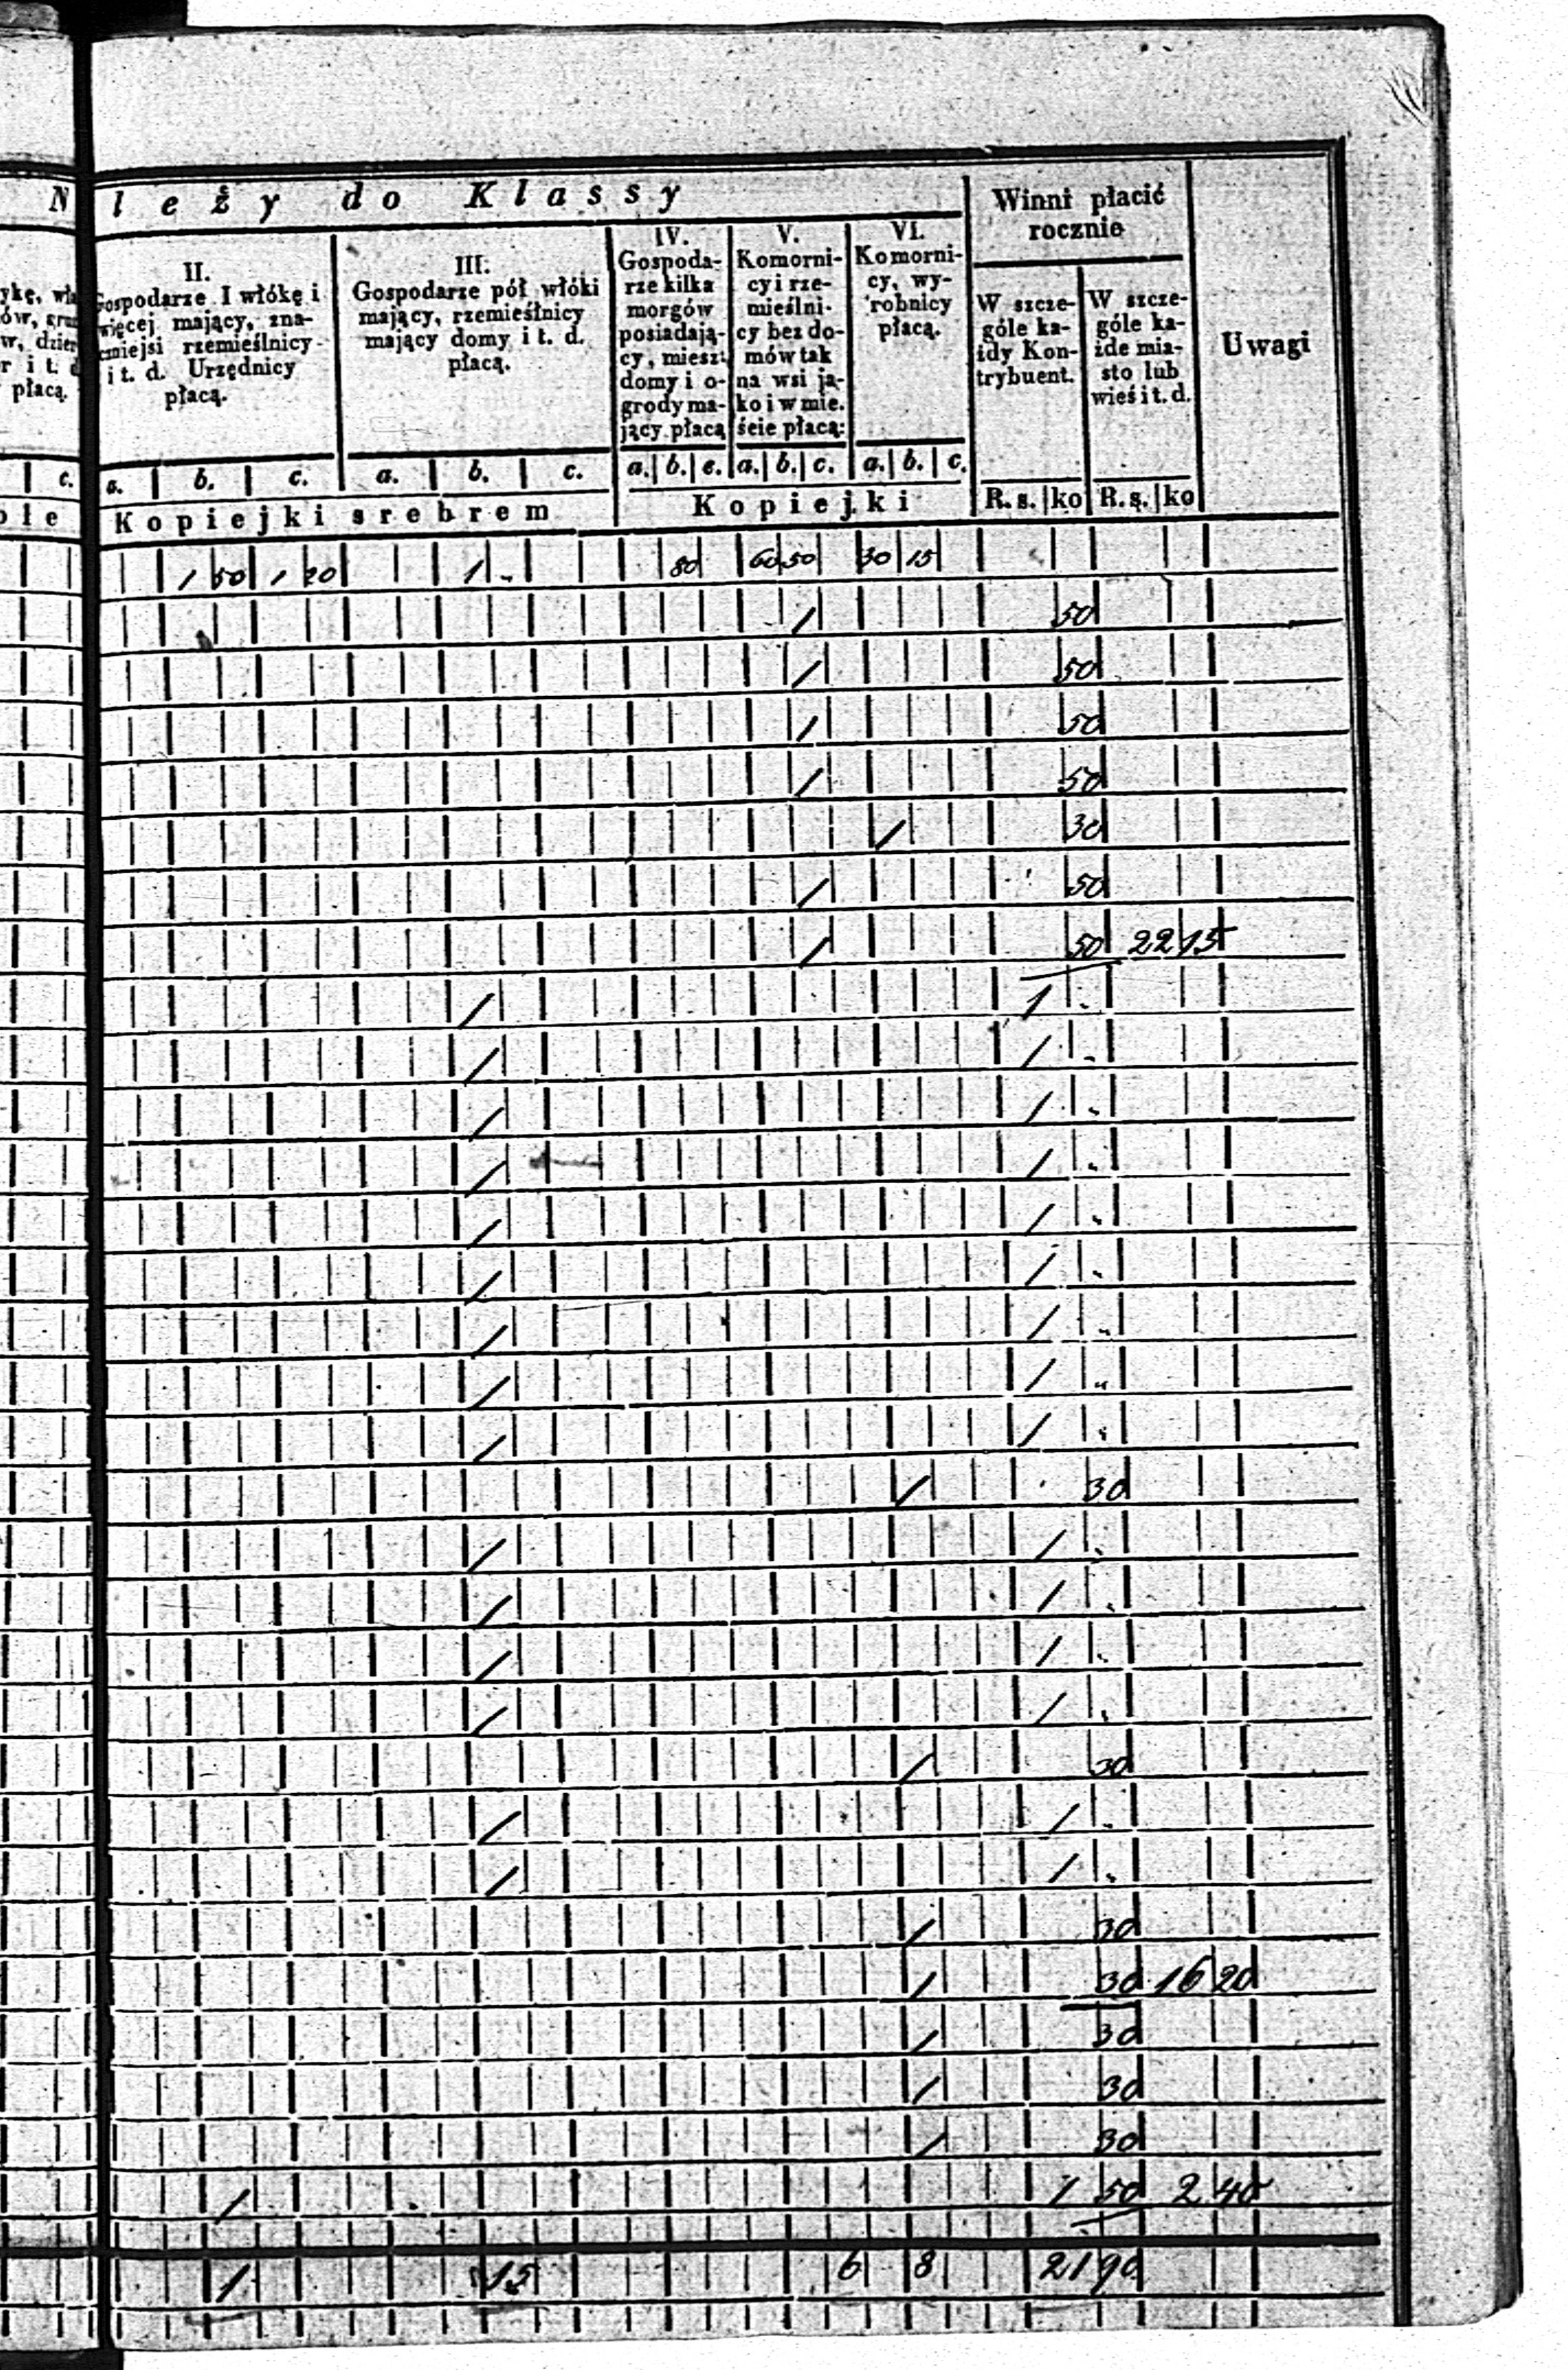 N leży do Klassy
Winni płacić
rocznie
Uwagi
ykę,
ów,
w,
r i t. d
płacą.
II.
Gospodarze I włókę i
więcej mający, zna-
czniejsi rzemieślnicy
i t. d. Urzędnicy
płacą.
III.
Gospodarze pół włóki
mający, rzemieślnicy
mający domy i t. d.
płacą.
IV.
Gospoda-
rze kilka
morgów
posiadają-
cy, mieszt
domy i o-
grody ma-
jący płacą
V.
Komorni-
cy i rze-
mieślni-
cy bez do-
mów tak
na wsi ja-
ko i w mie.
ście płacą:
VI.
Komorni-
cy, wy-
robnicy
płacą.
W szcze-
góle ka-
żdy Kon-
trybuent.
W szcze-
góle ka-
żde mia-
sto lub
wieś i t. d.
c. a. b. c. a. b. c. a. b. c. a. b. c. a. b. c.
ble Kopiejki srebrem Kopiejki R. s. ko R. s. ko
1 50 1 20 1 - 80 60 50 30 15
/ 50
/ 50
/ 50
/ 50
/ 30
/ 50
/ 50 22 15
/ 1 -
/ / -
/ / -
/ / -
/ / -
/ / -
/ / -
/ / "
/ / -
/ 30
/ / -
/ / -
/ / -
/ / -
/ 30
/ / -
/ / -
/ 30
/ 30 16 20
/ 30
/ 30
/ 30
/ 1 50 2 40
1 15 6 8 21 90